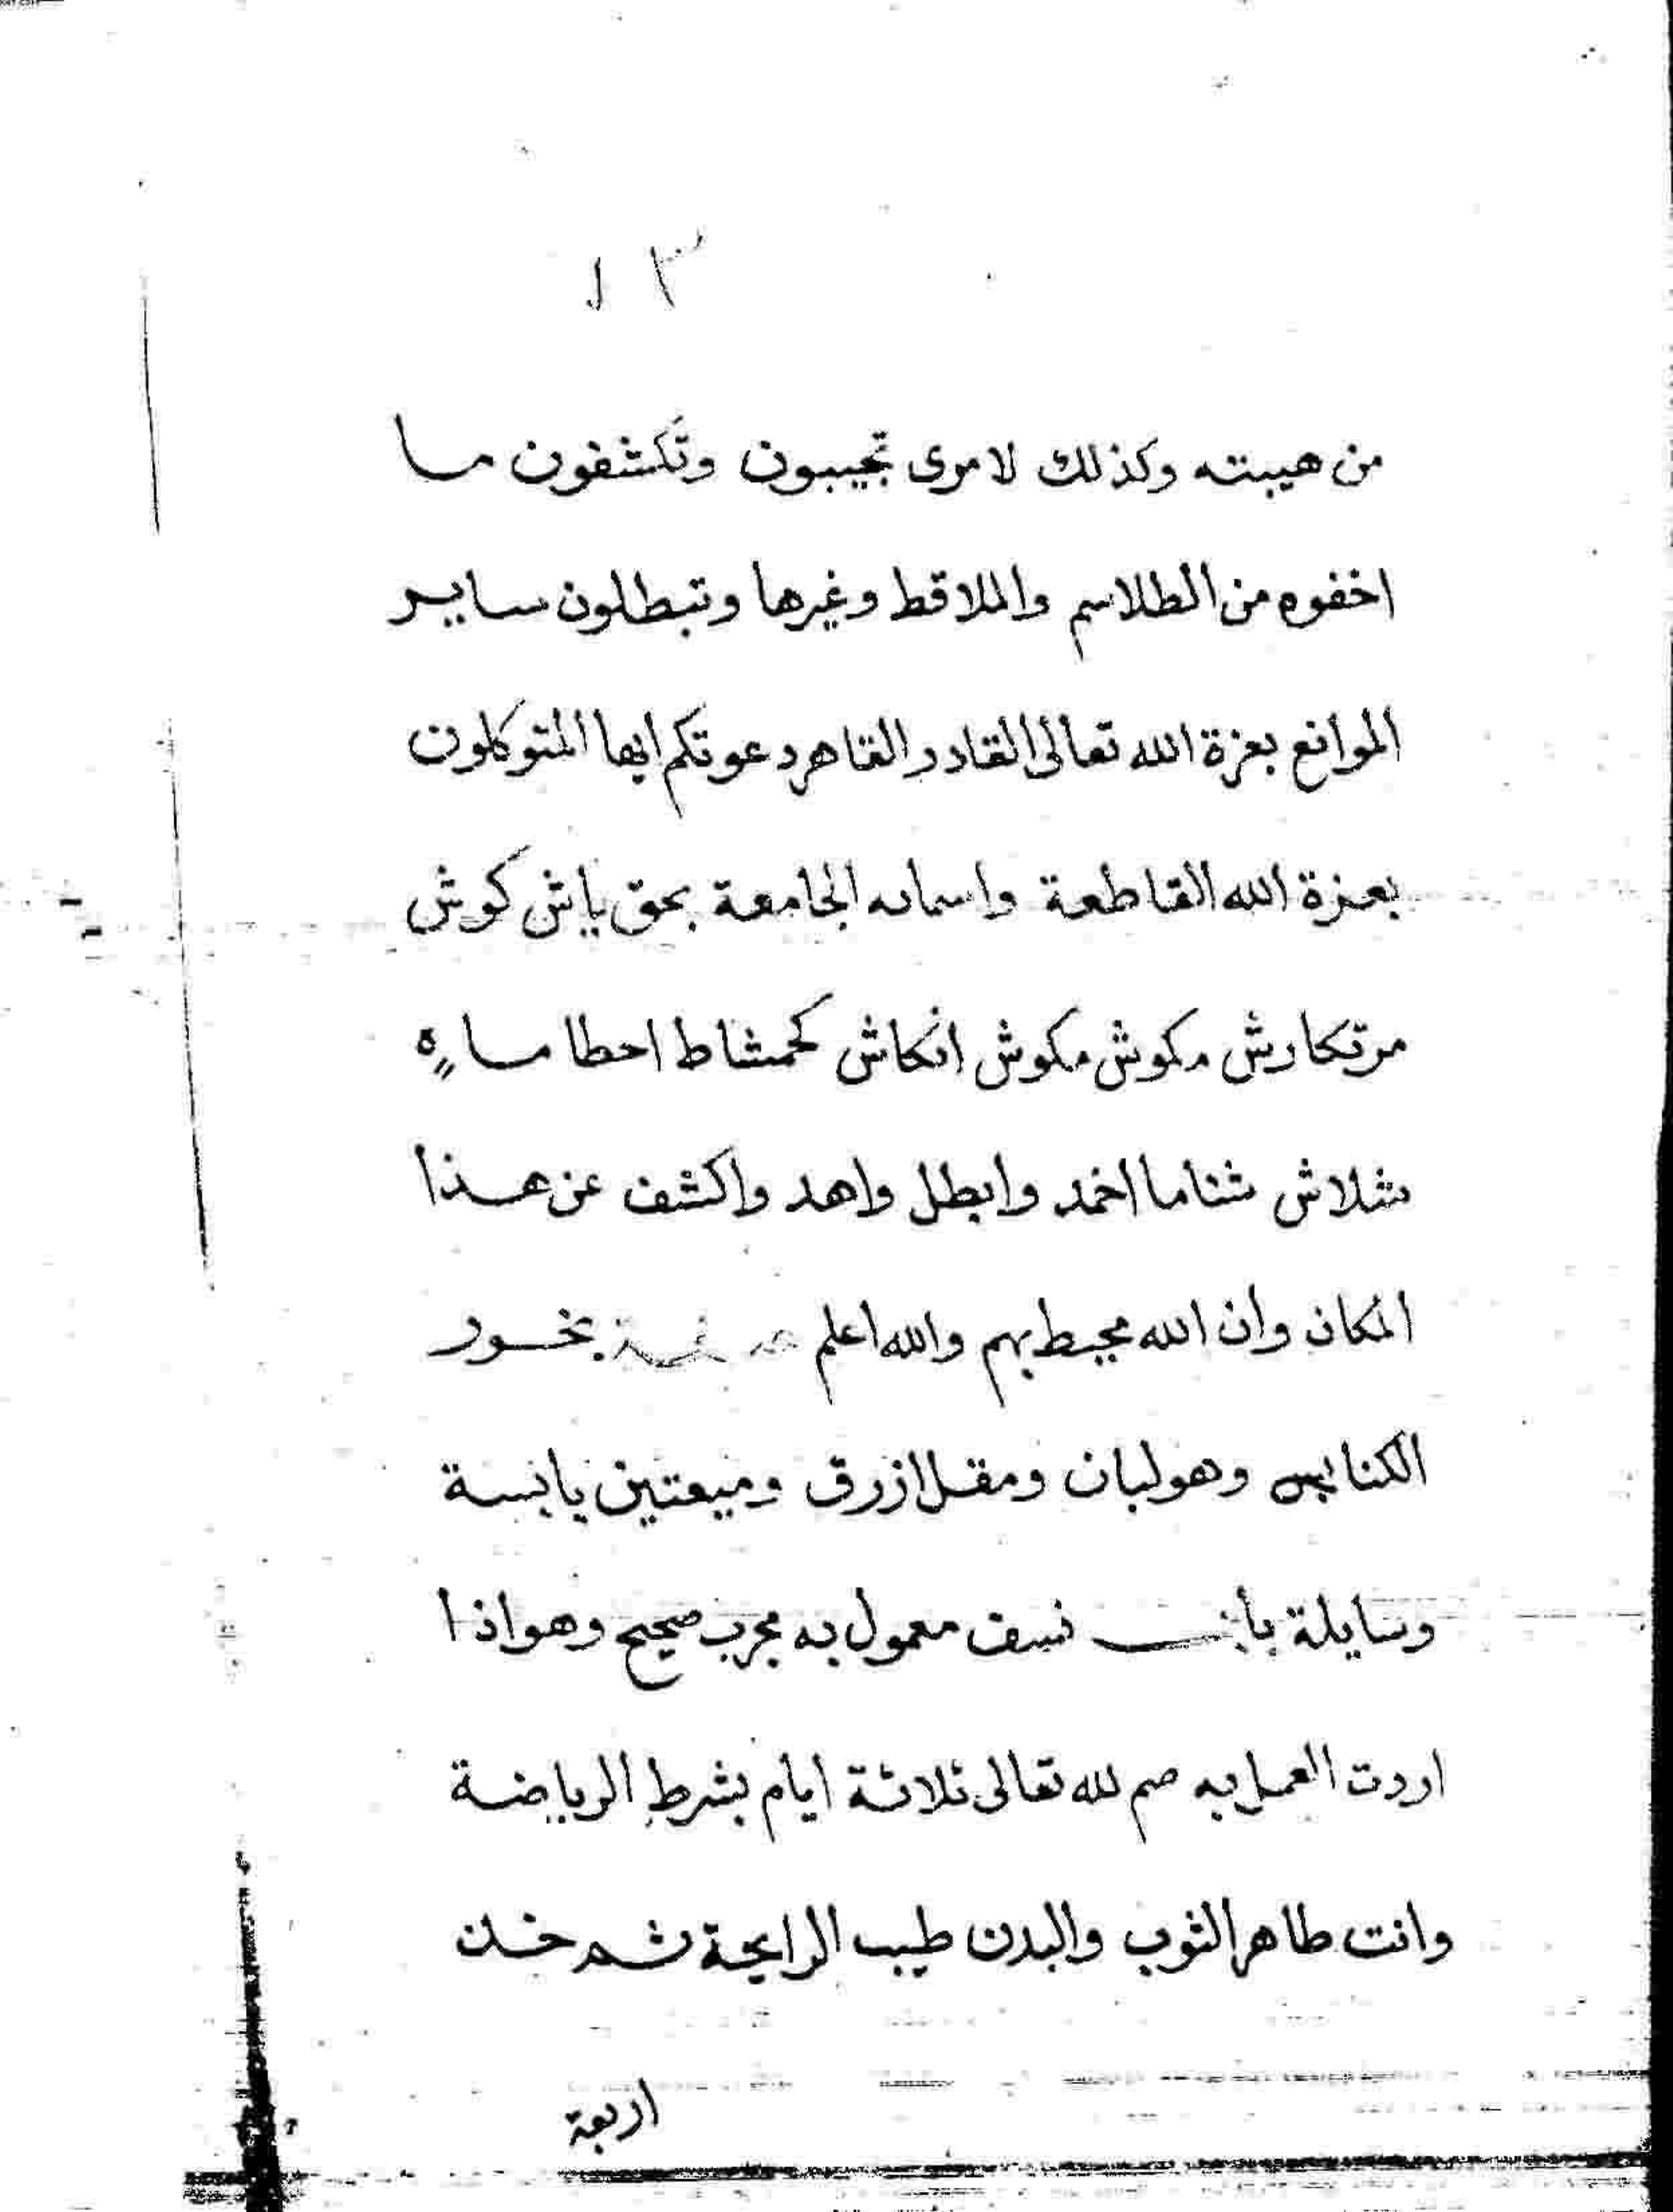 من هيبته وكذلك لامرى تجيبون وتكشفون ما
اخفوه من الطلاسم والملاقط وغيرها وتبطلون ساير
الموانع بعزة الله تعالى القادر القاهر دعوتكم ايها المتوكلون
بعزة الله القاطعة واسمائه الجامعة بحق ياش كوش
مرتكارش مكوش مكوش انكاش كحمشاط احطاما
شلاش شناما اخمد وابطل واهد واكشف عن هذا
المكان وان الله محيط بهم والله اعلم بخور
الكنايس وهو لبان ومقل ازرق وميعتين يابسة
وسايلة باب نسف معمول به مجرب صحيح وهو اذا
اردت العمل به صم لله تعالى ثلاثة ايام بشرط الرياضة
وانت طاهر الثوب والبدن طيب الرايحة ثم خذ
اربعة